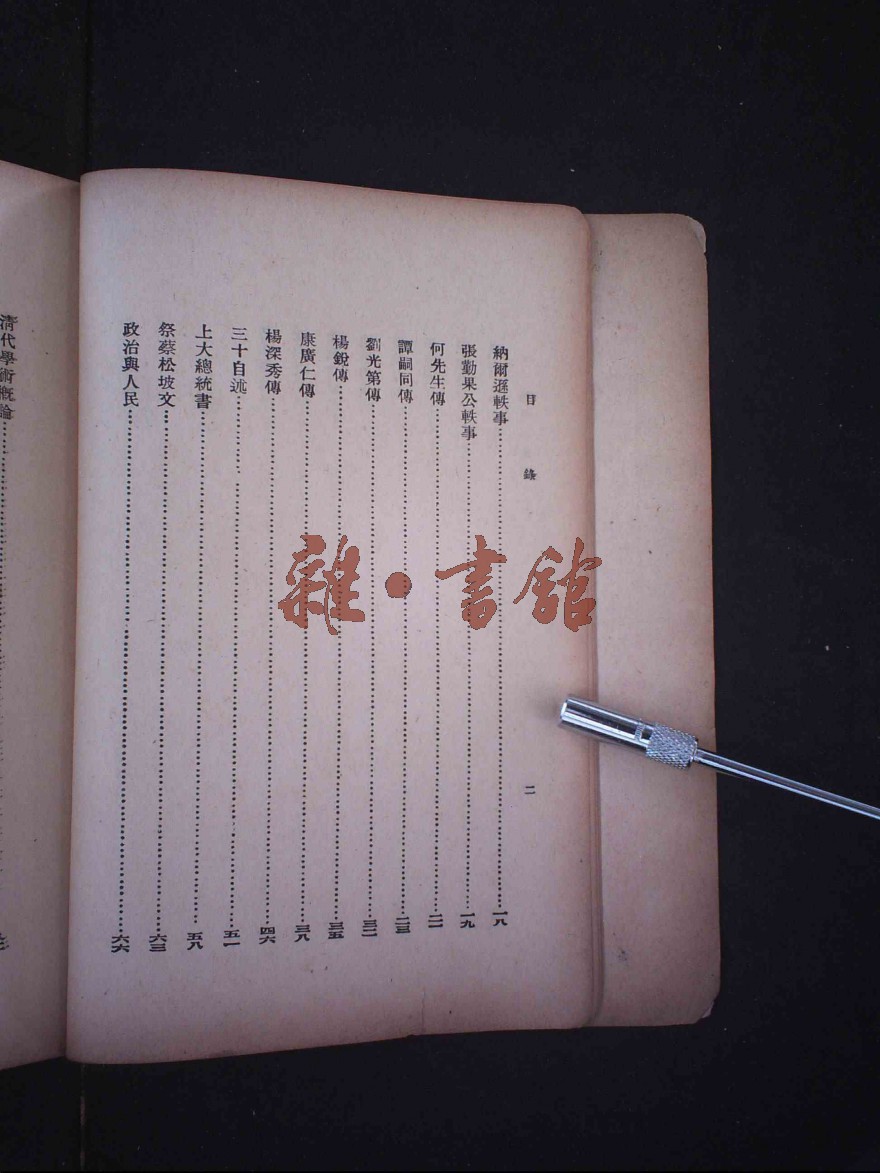 目錄 二
納爾遜軼事 一八
張勤果公軼事 一九
何先生傳 二一
譚嗣同傳 二三
劉光第傳 三二
楊銳傳 三五
康廣仁傳 三八
楊深秀傳 四六
三十自述 五一
上大總統書 五八
祭蔡松坡文 六三
政治與人民 六六
清代學術概論
雜·書館